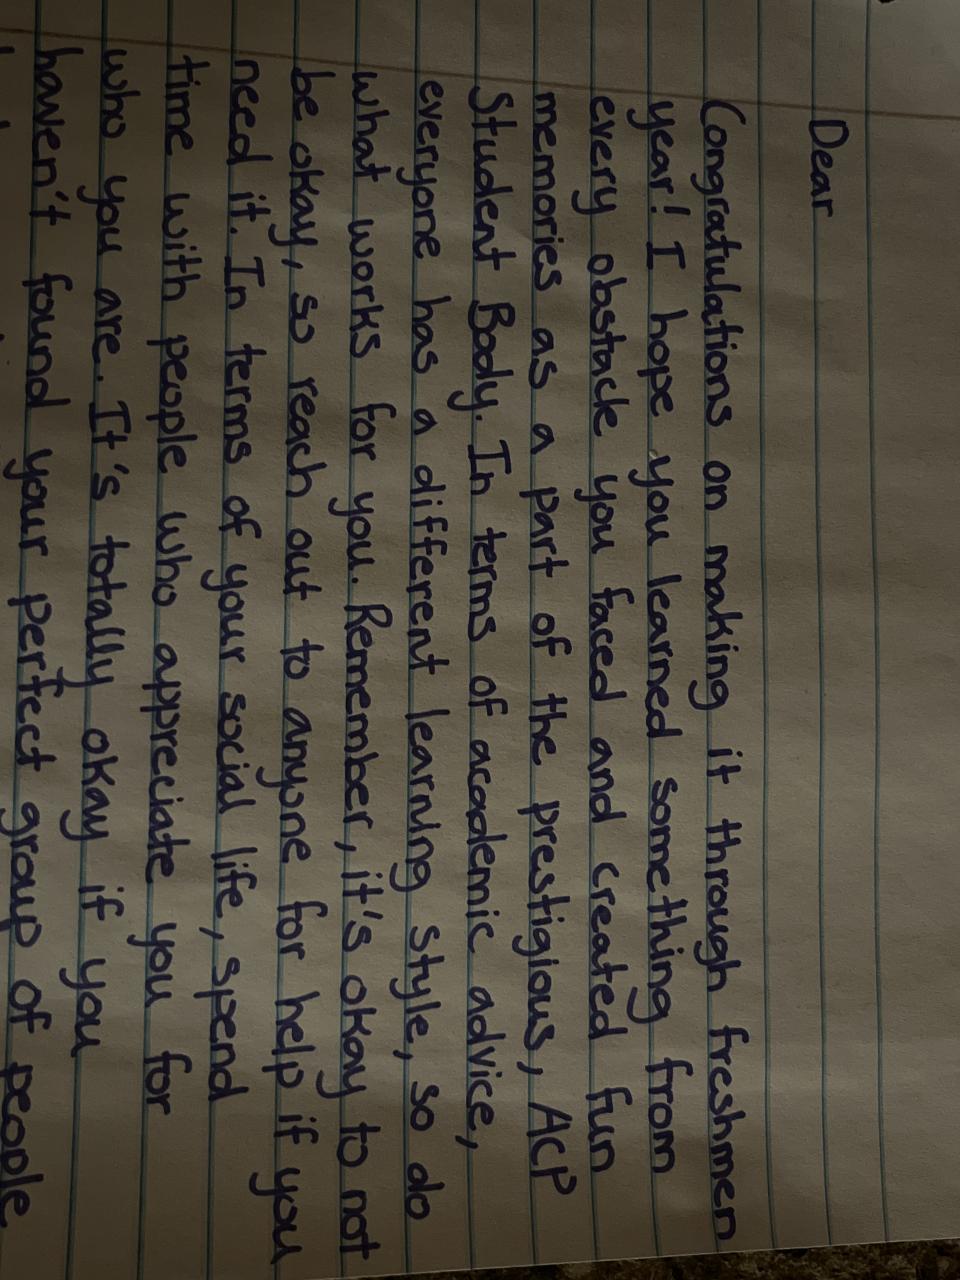 Dear
Congratulations on making it through freshmen
year! I hope you learned something from
every obstacle you faced and created fun
memories as a part of the prestigious, ACP
Student Body. In terms of academic advice,
everyone has a different learning style, so do
what works for you. Remember, it's okay to not
be okay, so reach out to anyone for help if you
need it. In terms of your social life, spend
time with people who appreciate you for
who you are. It's totally okay if you
haven't found your perfect group of people